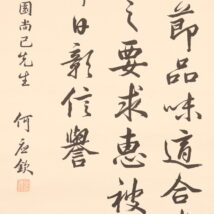 節品味適合
之要求惠被
日彰信譽
園尚己先生
何應欽